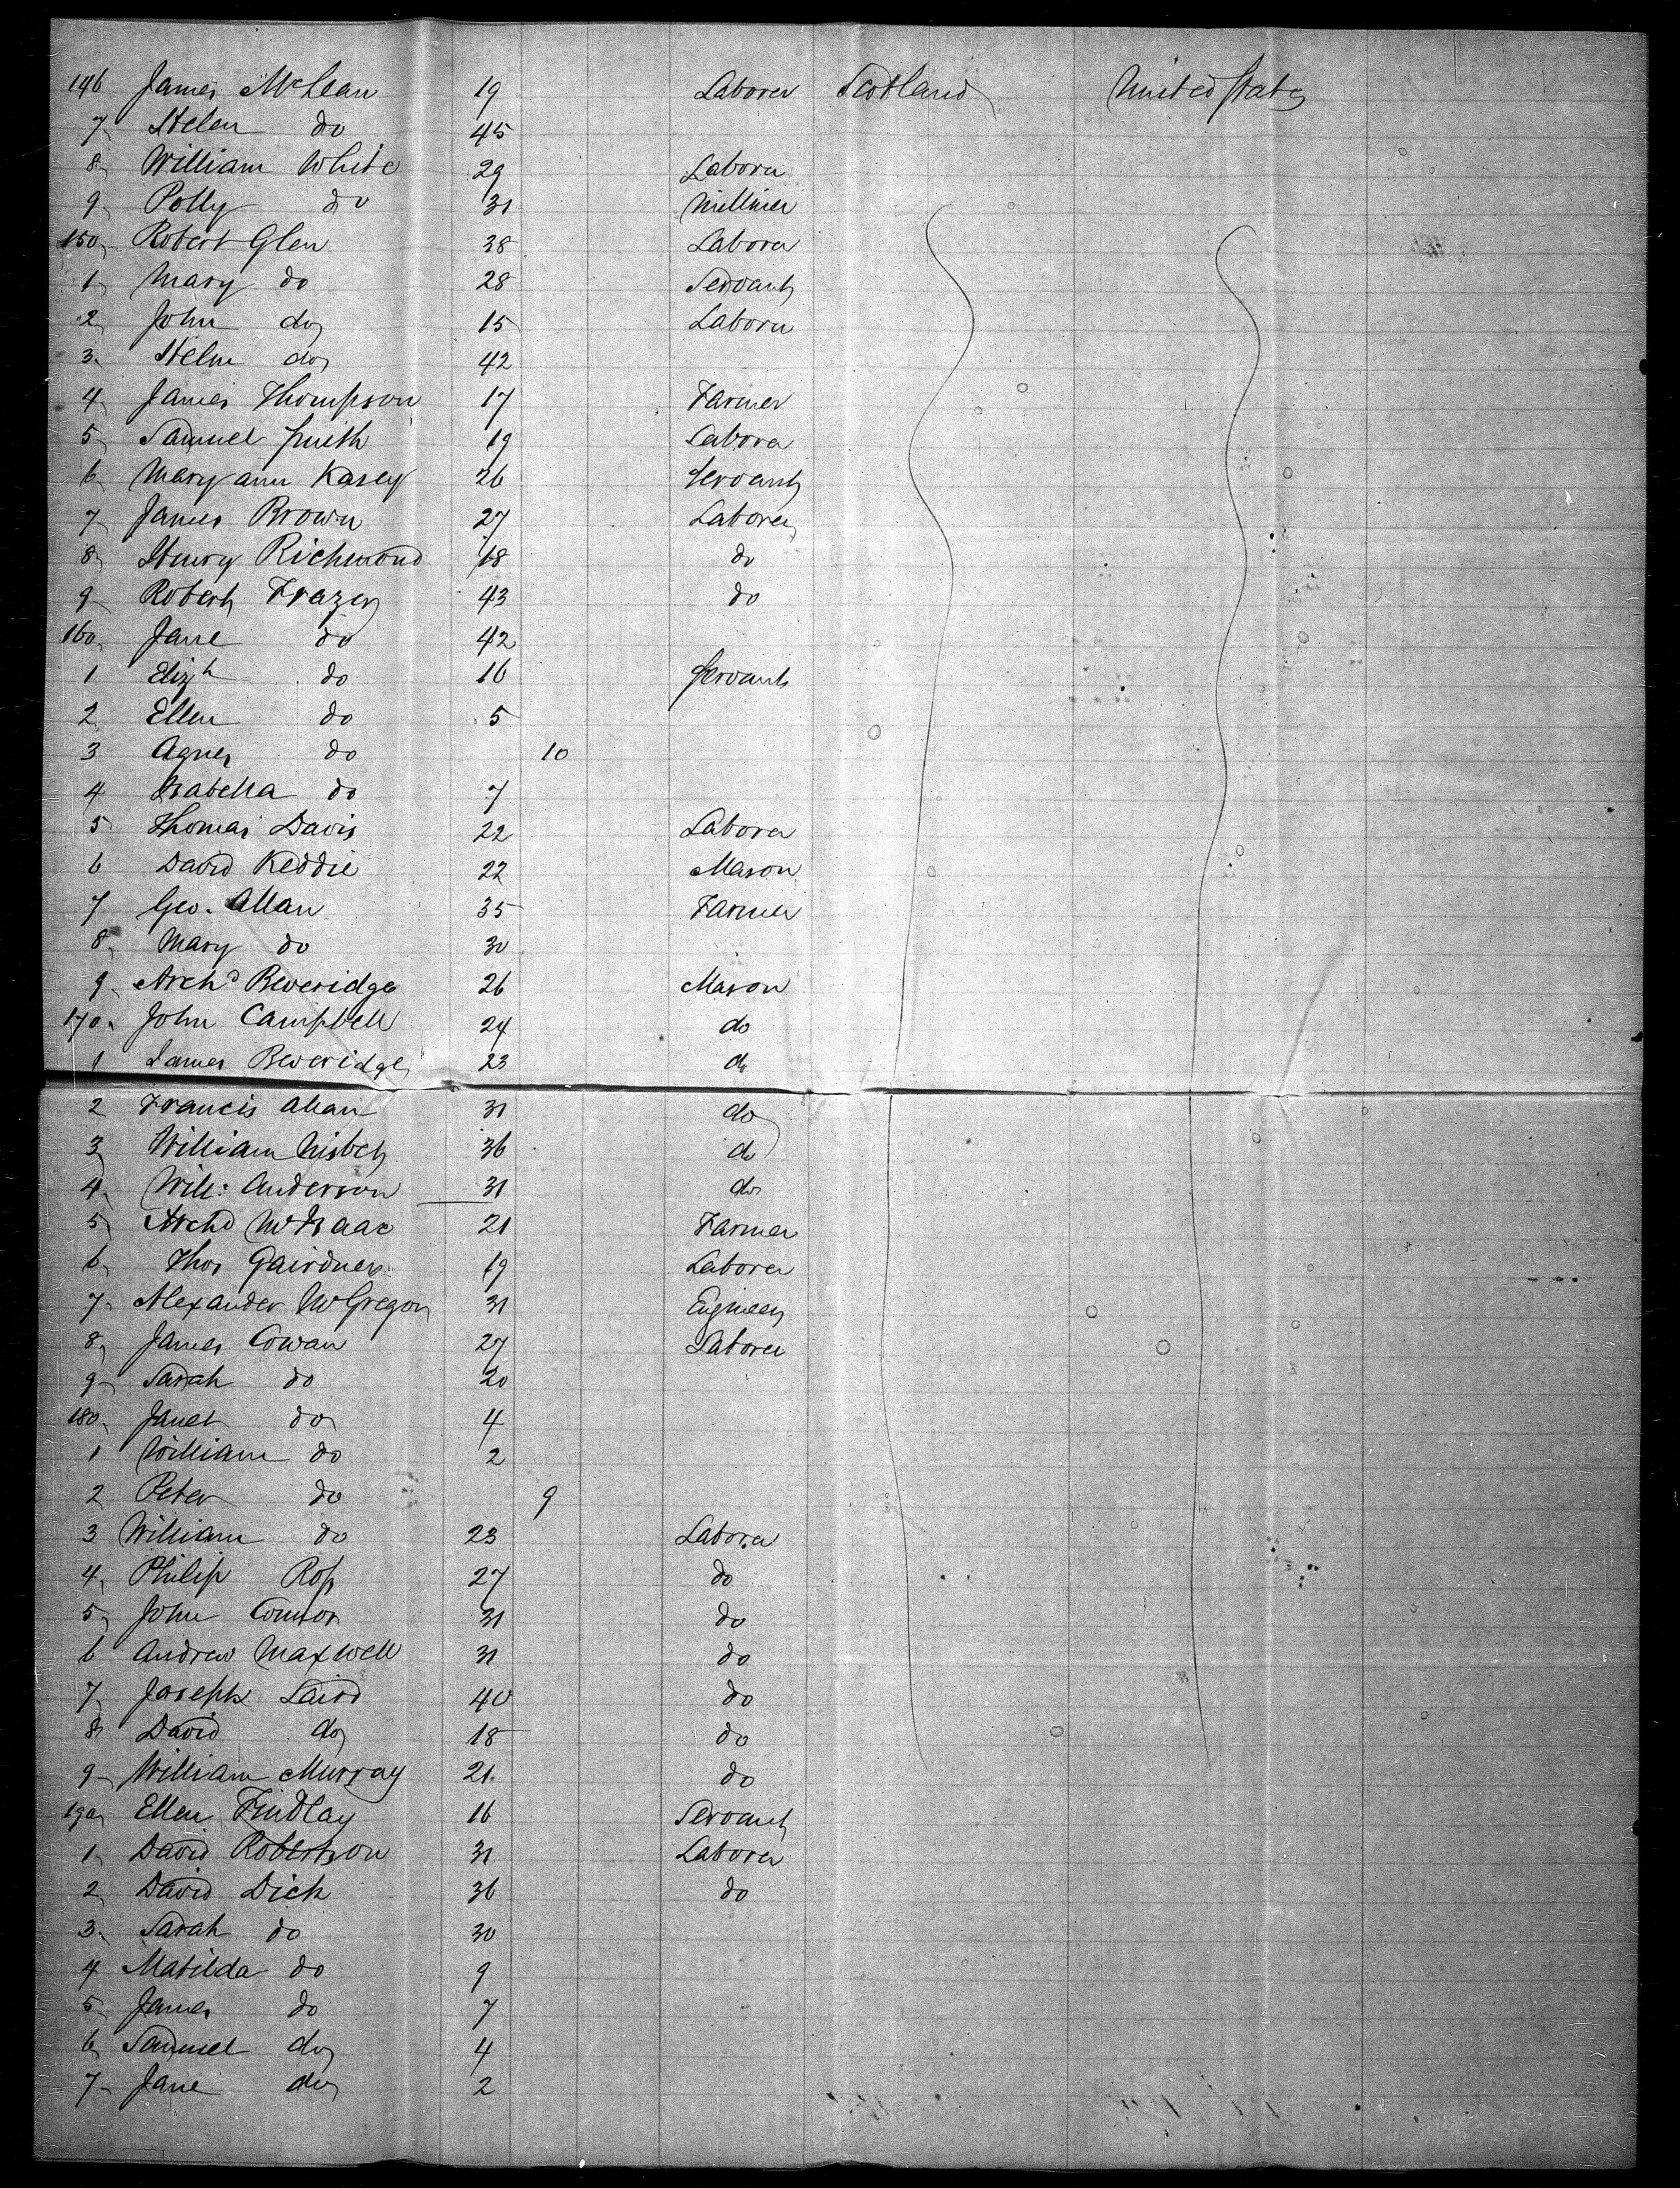 146 James McLean 19 Laborer Scotland United States
7 Helen do 45
8 William White 29 Laborer
9 Polly do 31 Milliner
150 Robert Glen 38 Laborer
1 Mary do 28 Servant
2 John do 15 Laborer
3 Helen do 42
4 James Thompson 17 Farmer
5 Samuel Smith 19 Laborer
6 Mary ann Kasey 26 Servant
7 James Brown 27 Laborer
8 Henry Richmond 18 do
9 Robert Frazer 43 do
160 Jane do 42
1 Elizh do 16 Servant
2 Ellen do 5
3 Agnes do 10
4 Isabella do 7
5 Thomas Davis 22 Laborer
6 David Keddie 22 Mason
7 Geo. Allan 35 Farmer
8 Mary do 30
9 Archd Beveridge 26 Mason
170 John Campbell 24 do
1 James Beveridge 23 do
2 Francis Allan 31 do
3 William Nisbet 36 do
4 Will: Anderson 31 do
5 Archd McIsaac 21 Farmer
6 Thos Gairdner 19 Laborer
7 Alexander McGregor 31 Engineer
8 James Cowan 27 Laborer
9 Sarah do 20
180 Janet do 4
1 William do 2
2 Peter do 9
3 William do 23 Laborer
4 Philip Ross 27 do
5 John Connor 31 do
6 Andrew Maxwell 31 do
7 Joseph Laird 40 do
8 David do 18 do
9 William Murray 21 do
190 Ellen Findlay 16 Servant
1 David Robertson 31 Laborer
2 David Dick 36 do
3 Sarah do 30
4 Matilda do 9
5 James do 7
6 Samuel do 4
7 Jane do 2